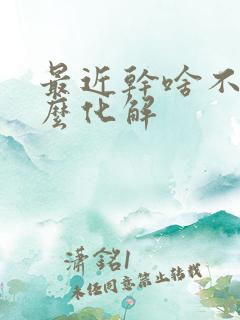 最近幹啥不
麼化解
瀟銘l
未经同意禁止转载